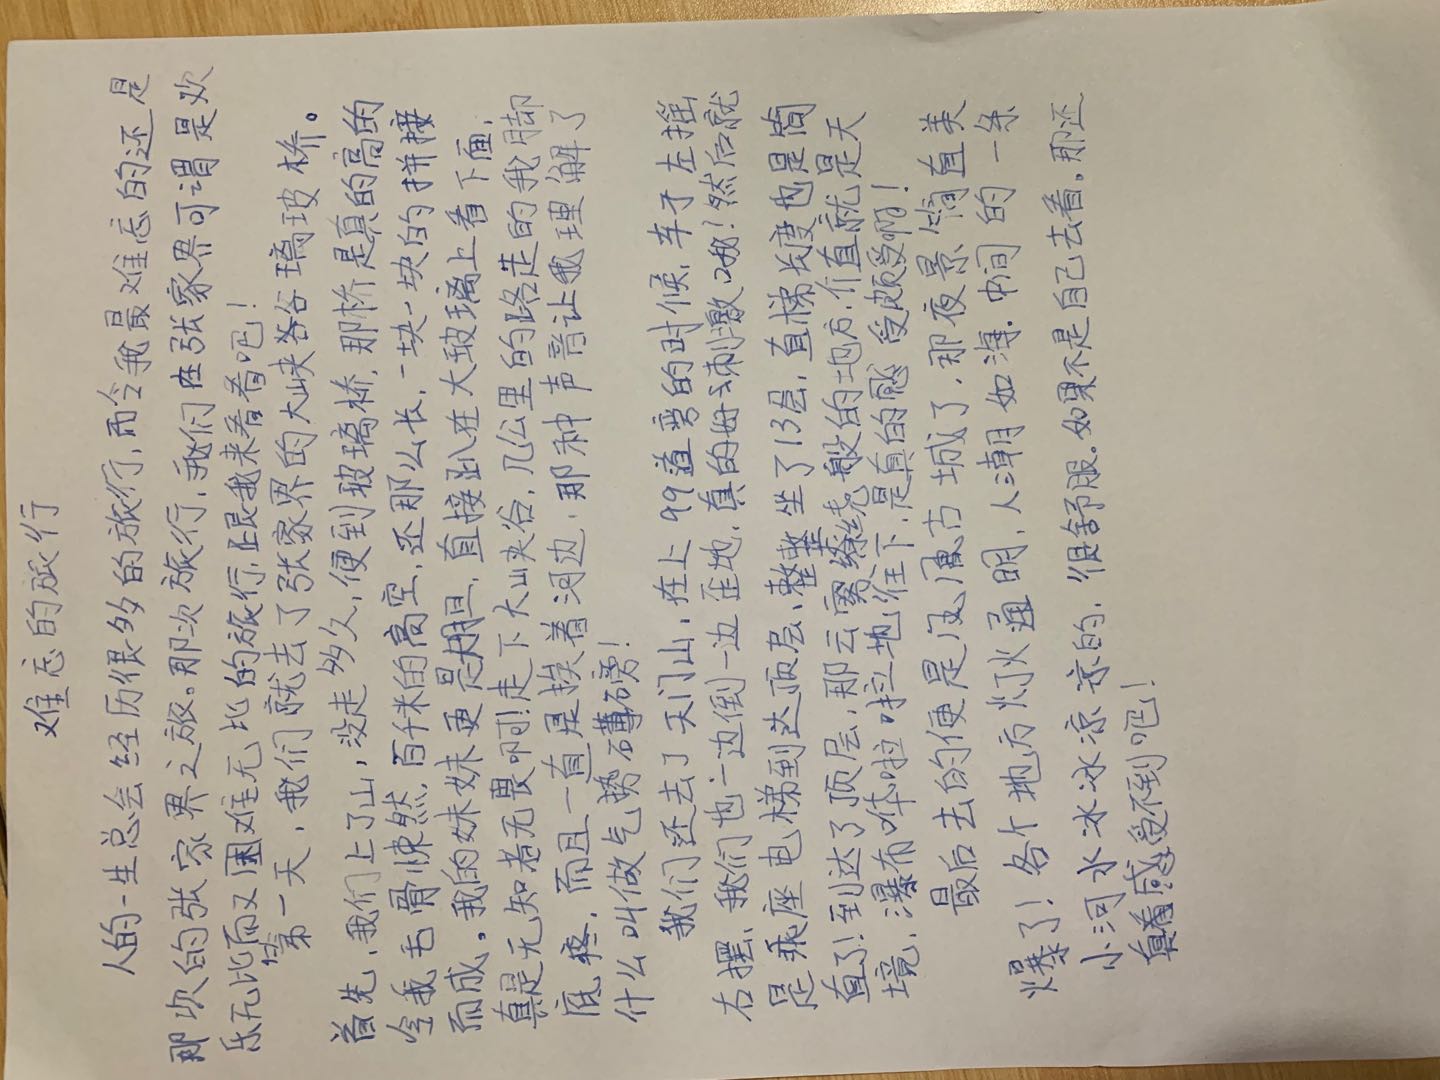 难忘的旅行
人的一生总会经历很多的旅行，而令我最难忘的还是
那次的张家界之旅。那次旅行，我们在张家界可谓是欢
乐无比而又困难无比的旅行，跟我来看看吧！
第一天，我们就去了张家界的大峡答谷璃玻桥。
首先，我们上了山，没走多久，便到玻璃桥，那桥是真的高的
令我毛骨悚然，百千米的高空，还那么长，一块一块的拼接
而成。我的妹妹更是胆，直接趴在大玻璃上看下面，
真是无知者无畏啊！走下大峡谷，几公里的路走的我脚
底疼，而且一直是挨着河边，那种声音让我理解了
什么叫做气势磅！
我们还去了天门山，在上99道弯的时候，车子左摇
右摆，我们也一边倒一边歪地，真的好刺激哦！然后就
是乘座电梯到达顶层，整整坐了13层，直梯长度也是简
直了！到达了顶层，那云雾缭绕般的地方，直就是天
境，瀑布哗啦啦地往下，是真的感受颇受啊！
最后去的便是凤凰古城了，那夜景简直美
爆了！各个地方灯火通明，人潮如海，中间的一条
小河水冰冰凉凉的，很舒服。如果不是自己去看，那还
真感受不到吧！